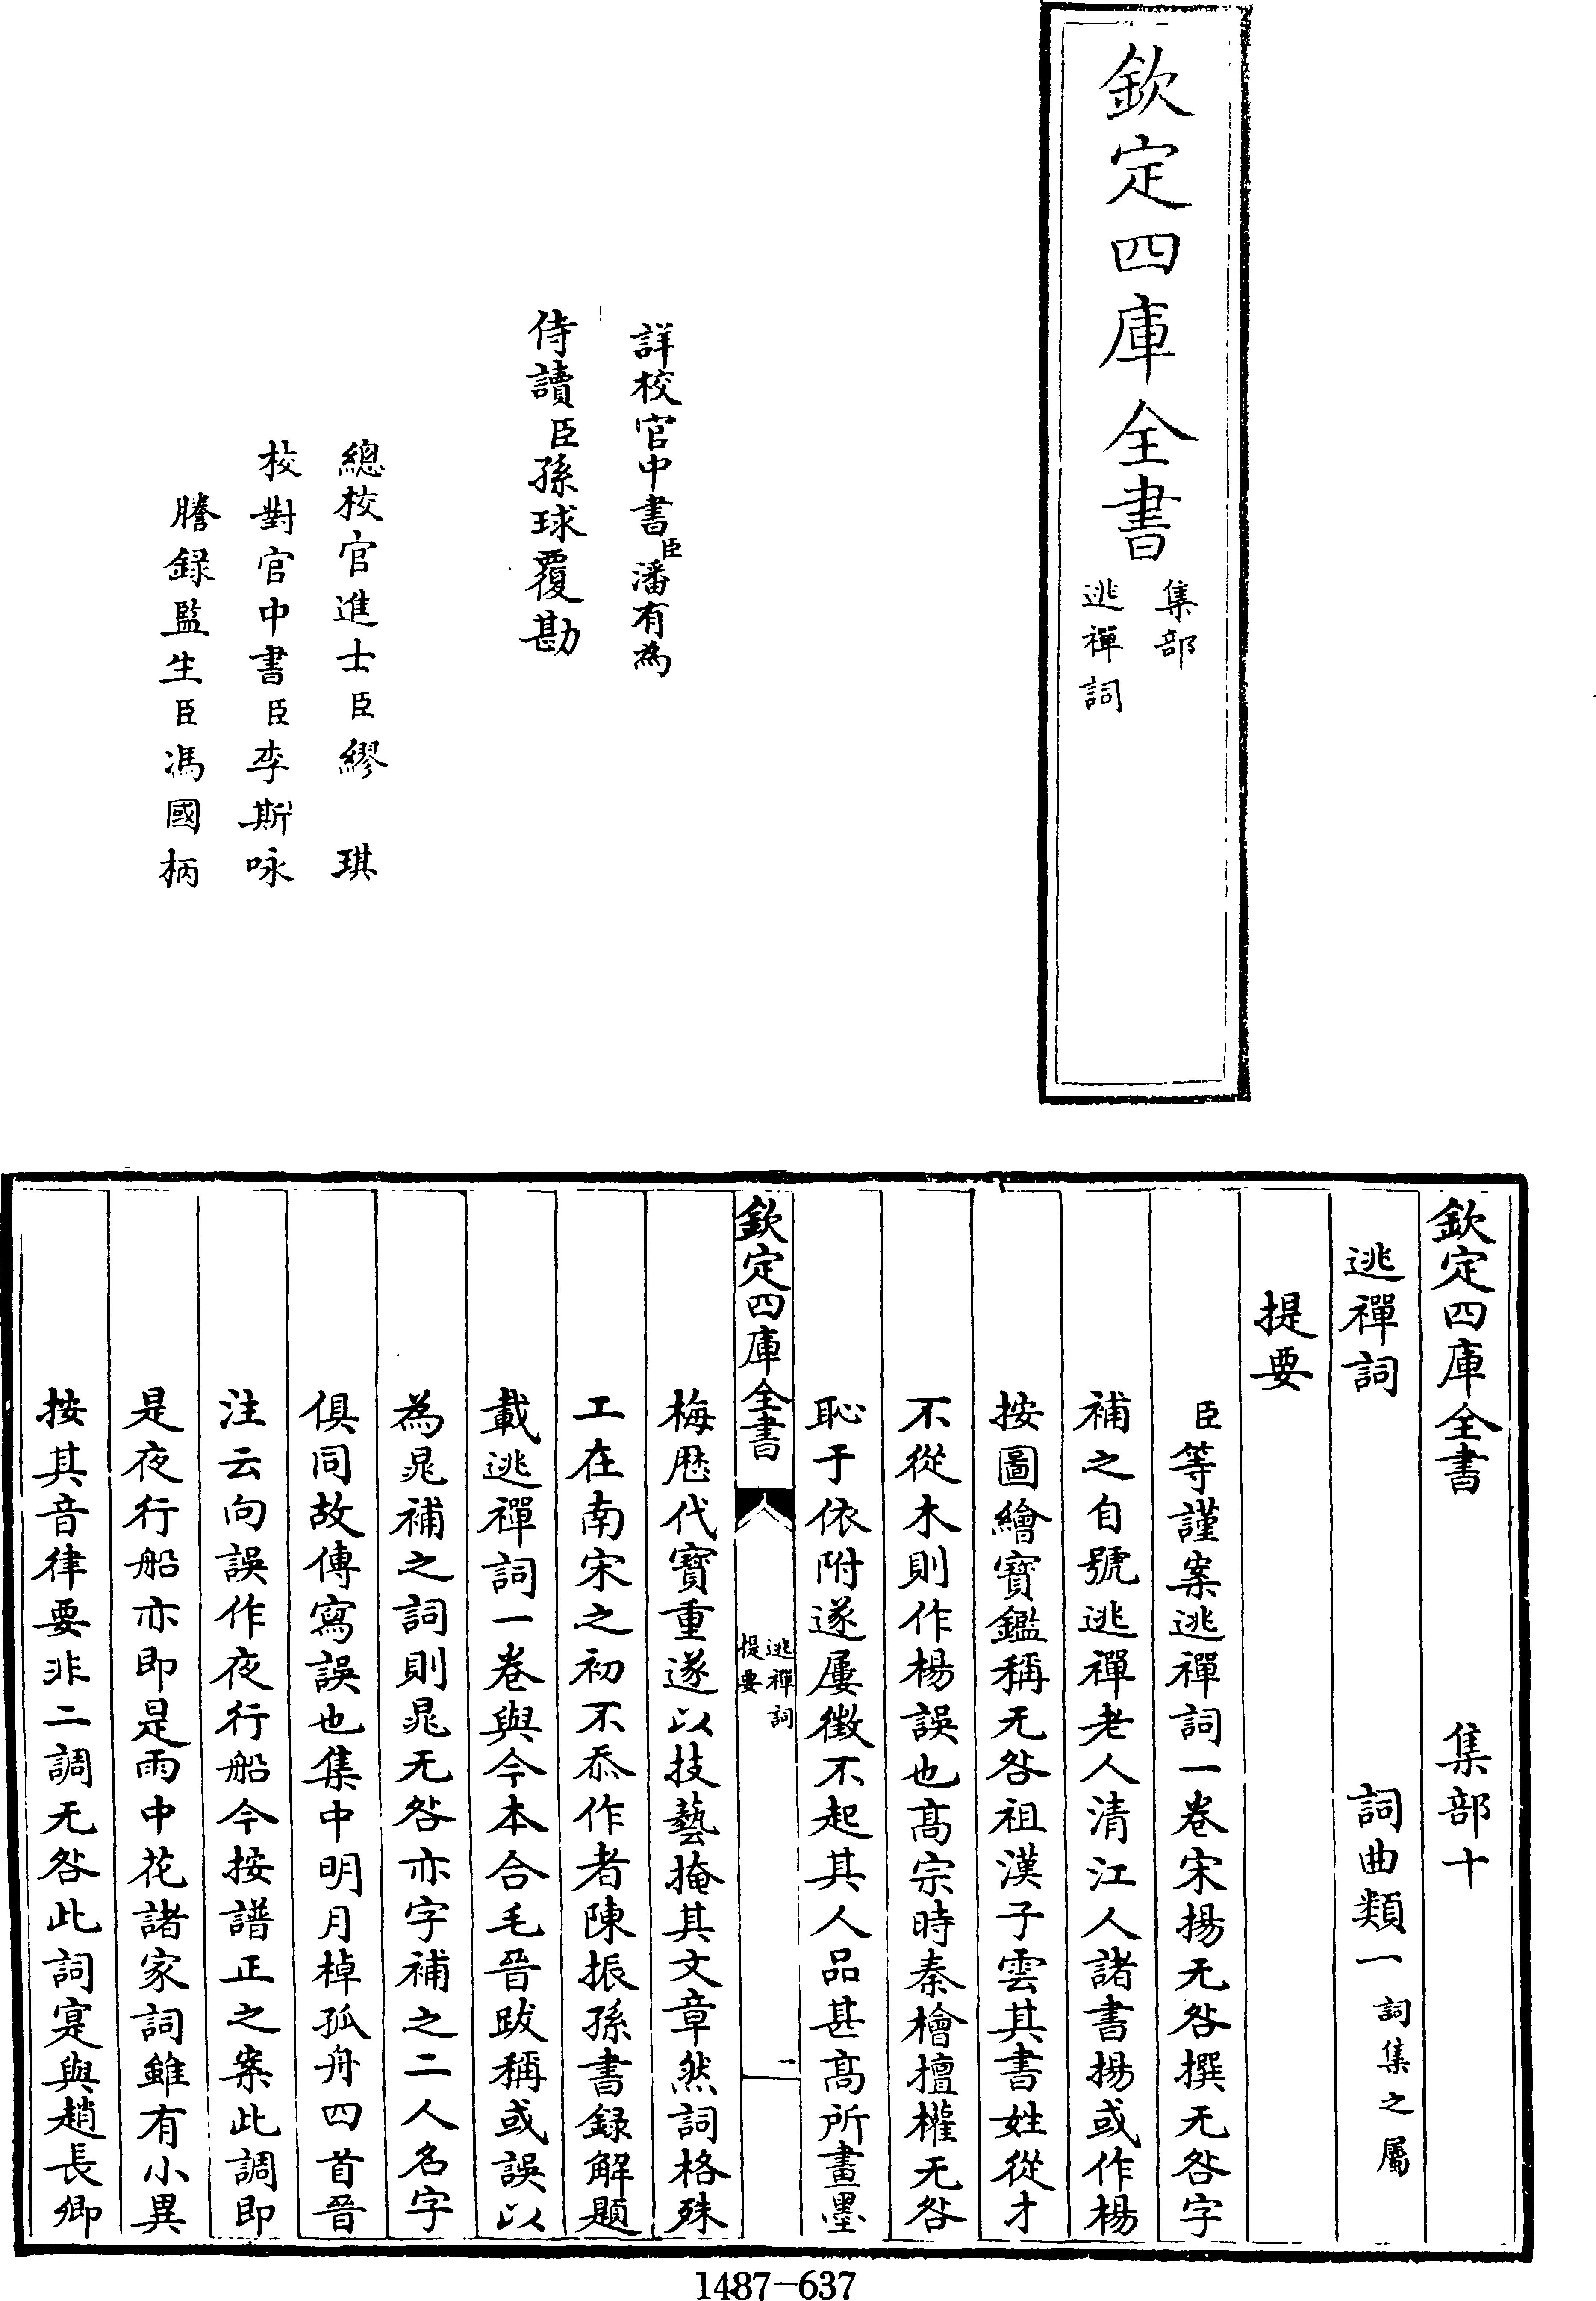 欽定四庫全書
集部
逃禪詞
詳校官中書臣潘有為
侍讀臣孫球覆勘
總校官進士臣繆琪
校對官中書臣李斯咏
謄録監生臣馮國柄
欽定四庫全書 集部十
逃禪詞 詞曲類一詞集之屬
提要
臣等謹案逃禪詞一卷宋揚无咎撰无咎字
補之自號逃禪老人清江人諸書揚或作楊
按圖繪寶鑑稱无咎祖漢子雲其書姓從才
不從木則作楊誤也髙宗時秦檜擅權无咎
恥于依附遂屢徴不起其人品甚髙所畫墨
欽定四庫全書
逃禪詞
提要
一
梅歴代寳重遂以技藝掩其文章然詞格殊
工在南宋之初不忝作者陳振孫書録解題
載逃禪詞一卷與今本合毛晉跋稱或誤以
為晁補之詞則晁无咎亦字補之二人名字
俱同故傳寫誤也集中明月棹孤舟四首晉
注云向誤作夜行船今按譜正之案此調即
是夜行船亦即是雨中花諸家詞雖有小異
按其音律要非二調无咎此詞寔與趙長卿
1487-637